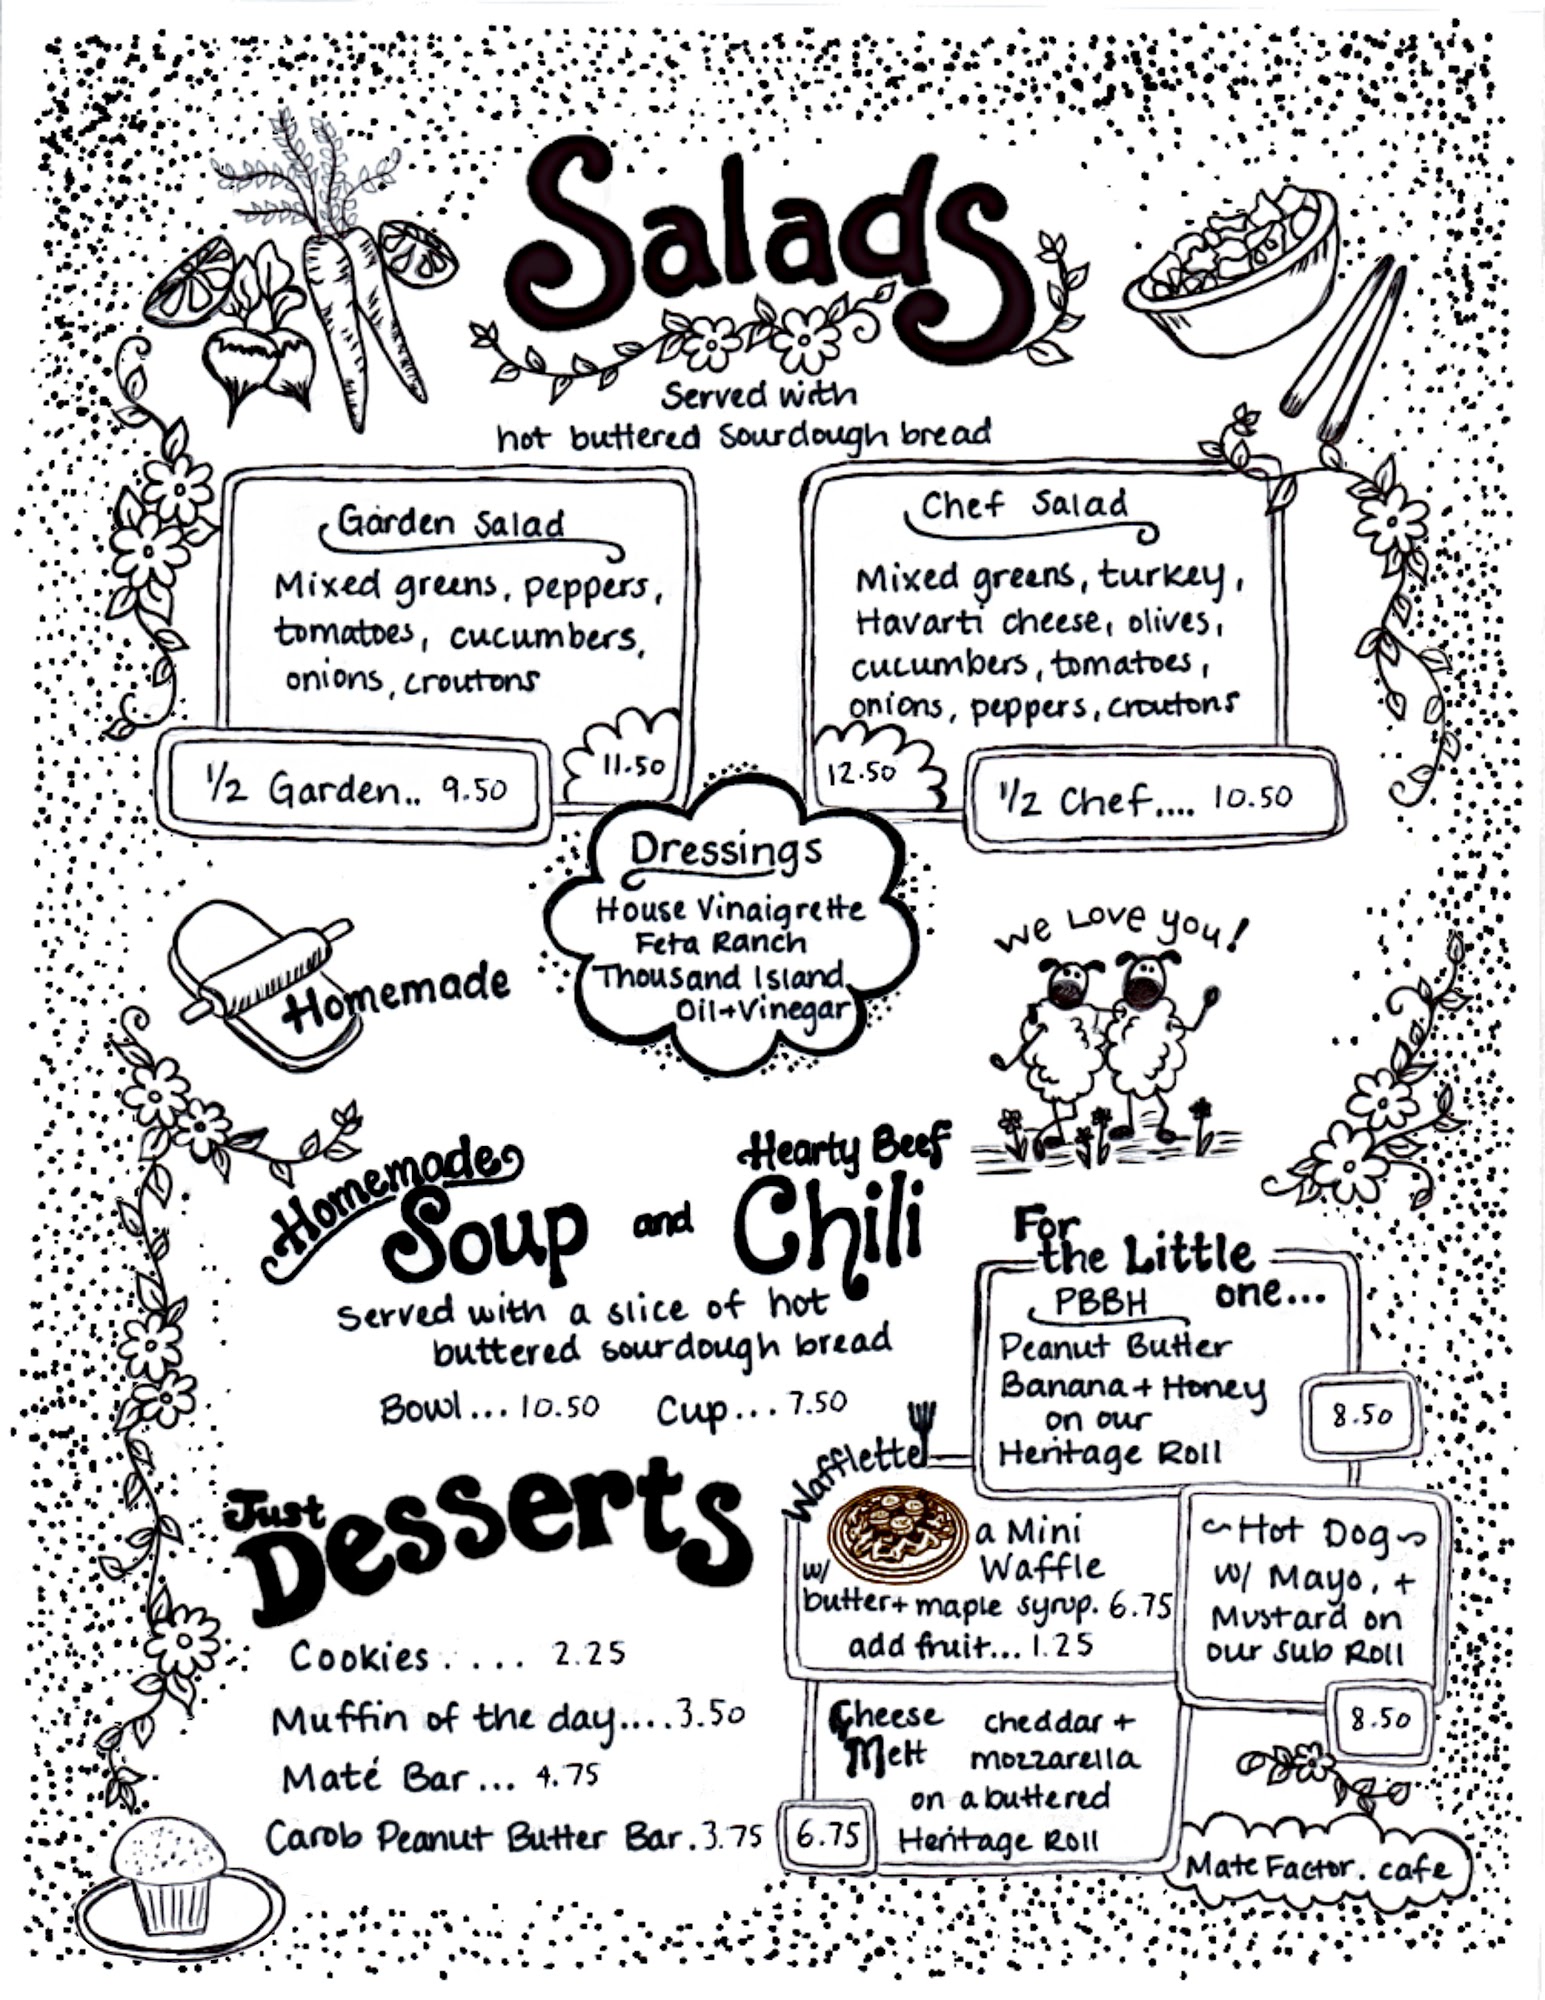 Salads
Served with
hot buttered Sourdough bread
Garden Salad
Mixed greens, peppers,
tomatoes, cucumbers,
onions, croutons
11.50
1/2 Garden.. 9.50
Chef Salad
Mixed greens, turkey,
Havarti cheese, olives,
cucumbers, tomatoes,
onions, peppers, croutons
12.50
1/2 Chef.... 10.50
Dressings
House Vinaigrette
Feta Ranch
Thousand Island
Oil+Vinegar
Homemade
We Love you!
Homemade
Soup and
Hearty Beef
Chili
Served with a slice of hot
buttered sourdough bread
Bowl... 10.50 Cup... 7.50
For
the Little
one...
PBBH
Peanut Butter
Banana + Honey
on our
Heritage Roll
8.50
Wafflette
a Mini
Waffle
w/
butter + maple syrup. 6.75
add fruit... 1.25
~Hot Dog~
w/ Mayo, +
Mustard on
our Sub Roll
8.50
Cheese
Melt
cheddar +
mozzarella
on a buttered
Heritage Roll
6.75
Just
Desserts
Cookies..... 2.25
Muffin of the day....3.50
Maté Bar... 4.75
Carob Peanut Butter Bar.3.75
Mate Factor. cafe